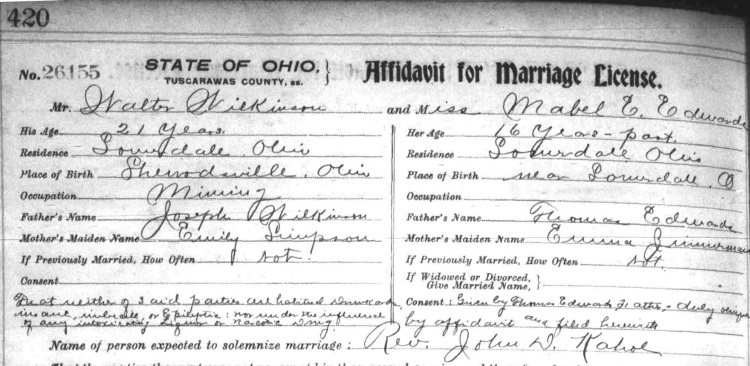 420
No. 26155 STATE OF OHIO, TUSCARAWAS COUNTY, ss. } Affidavit for Marriage License.
Mr. Walter Wilkinson and Miss Mabel E. Edwards
His Age 21 Years. Her Age 16 Years - past.
Residence Ohio Residence Ohio
Place of Birth Sherodsville, Ohio Place of Birth near O
Occupation Mining Occupation
Father's Name Joseph Wilkinson Father's Name Thomas Edwards
Mother's Maiden Name Emily Simpson Mother's Maiden Name Emma Zimmerman
If Previously Married, How Often Not. If Previously Married, How Often Not.
Consent If Widowed or Divorced, Give Married Name, }
That neither of said parties are habitual Drunkards, Consent: Given by Thomas Edwards Father - duly
insane, imbecile, or Epileptic: nor under the influence by affidavit and filed herewith
of any intoxicating liquor or narcotic Drug.
Name of person expected to solemnize marriage: Rev. John D.